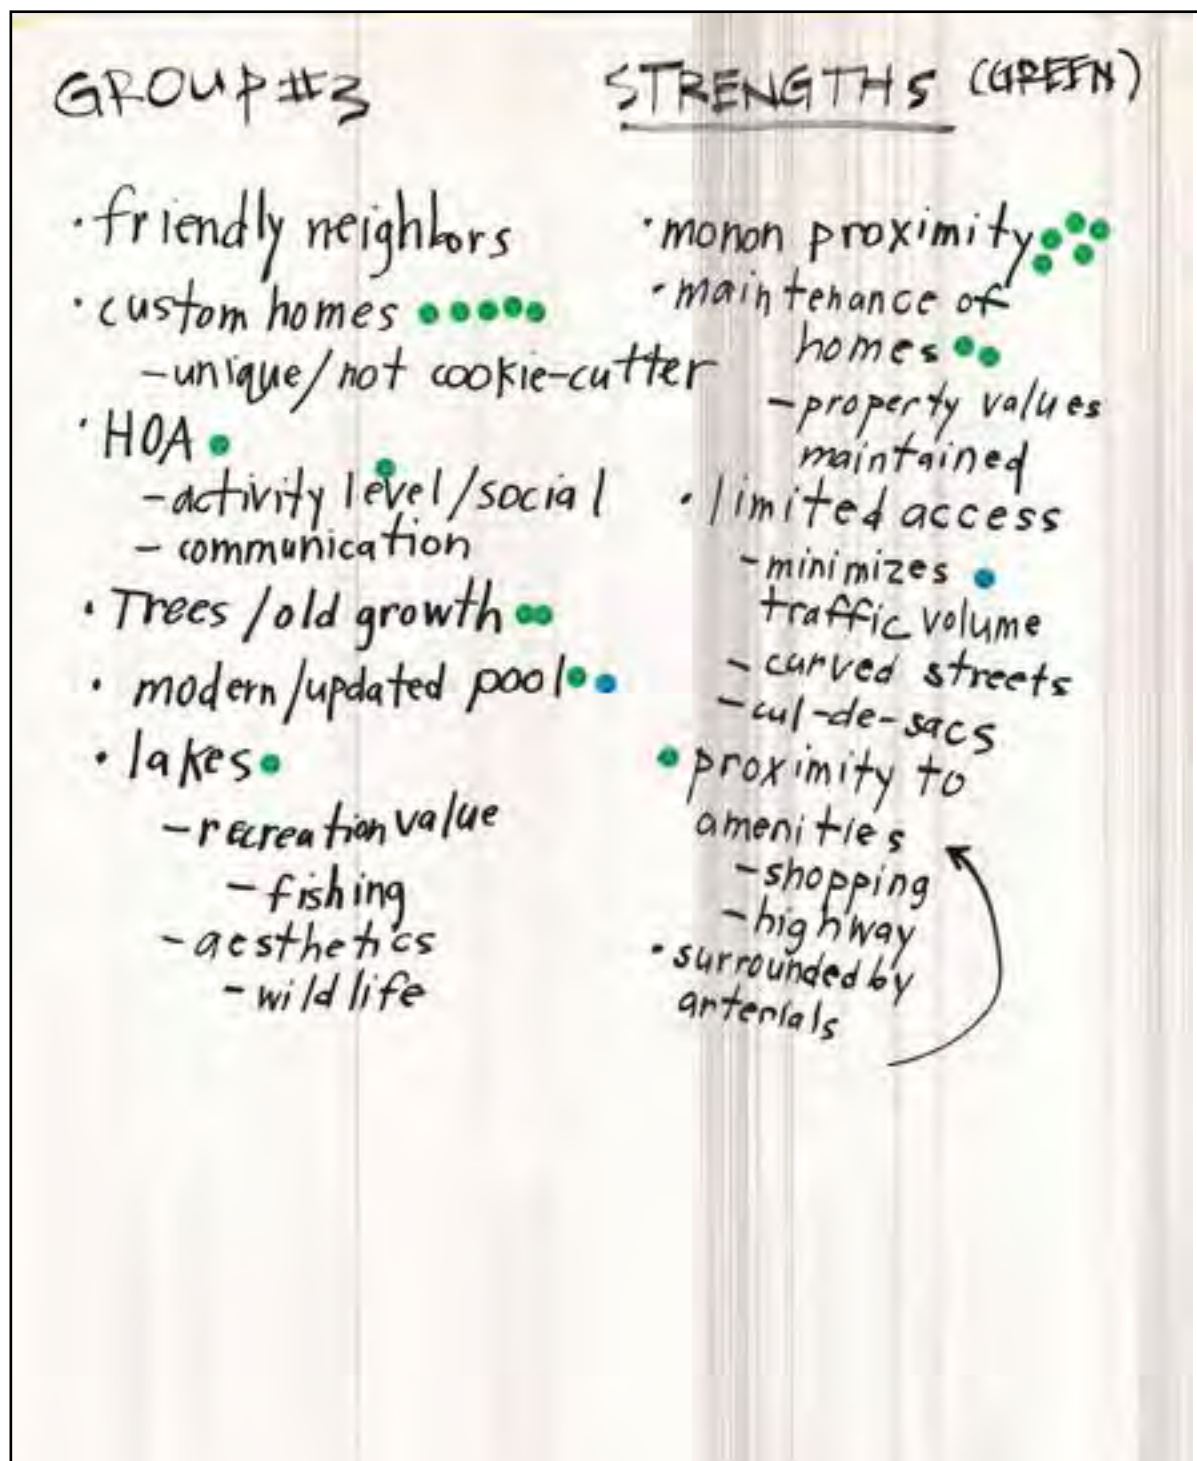 GROUP #3
STRENGTHS (GREEN)
· friendly neighbors
· custom homes
- unique/not cookie-cutter
· HOA
- activity level/social
- communication
· Trees/old growth
· modern/updated pool
· lakes
- recreation value
- fishing
- aesthetics
- wildlife
· monon proximity
· maintenance of
homes
- property values
maintained
· limited access
- minimizes
traffic volume
- curved streets
- cul-de-sacs
proximity to
amenities
- shopping
- highway
· surrounded by
arterials